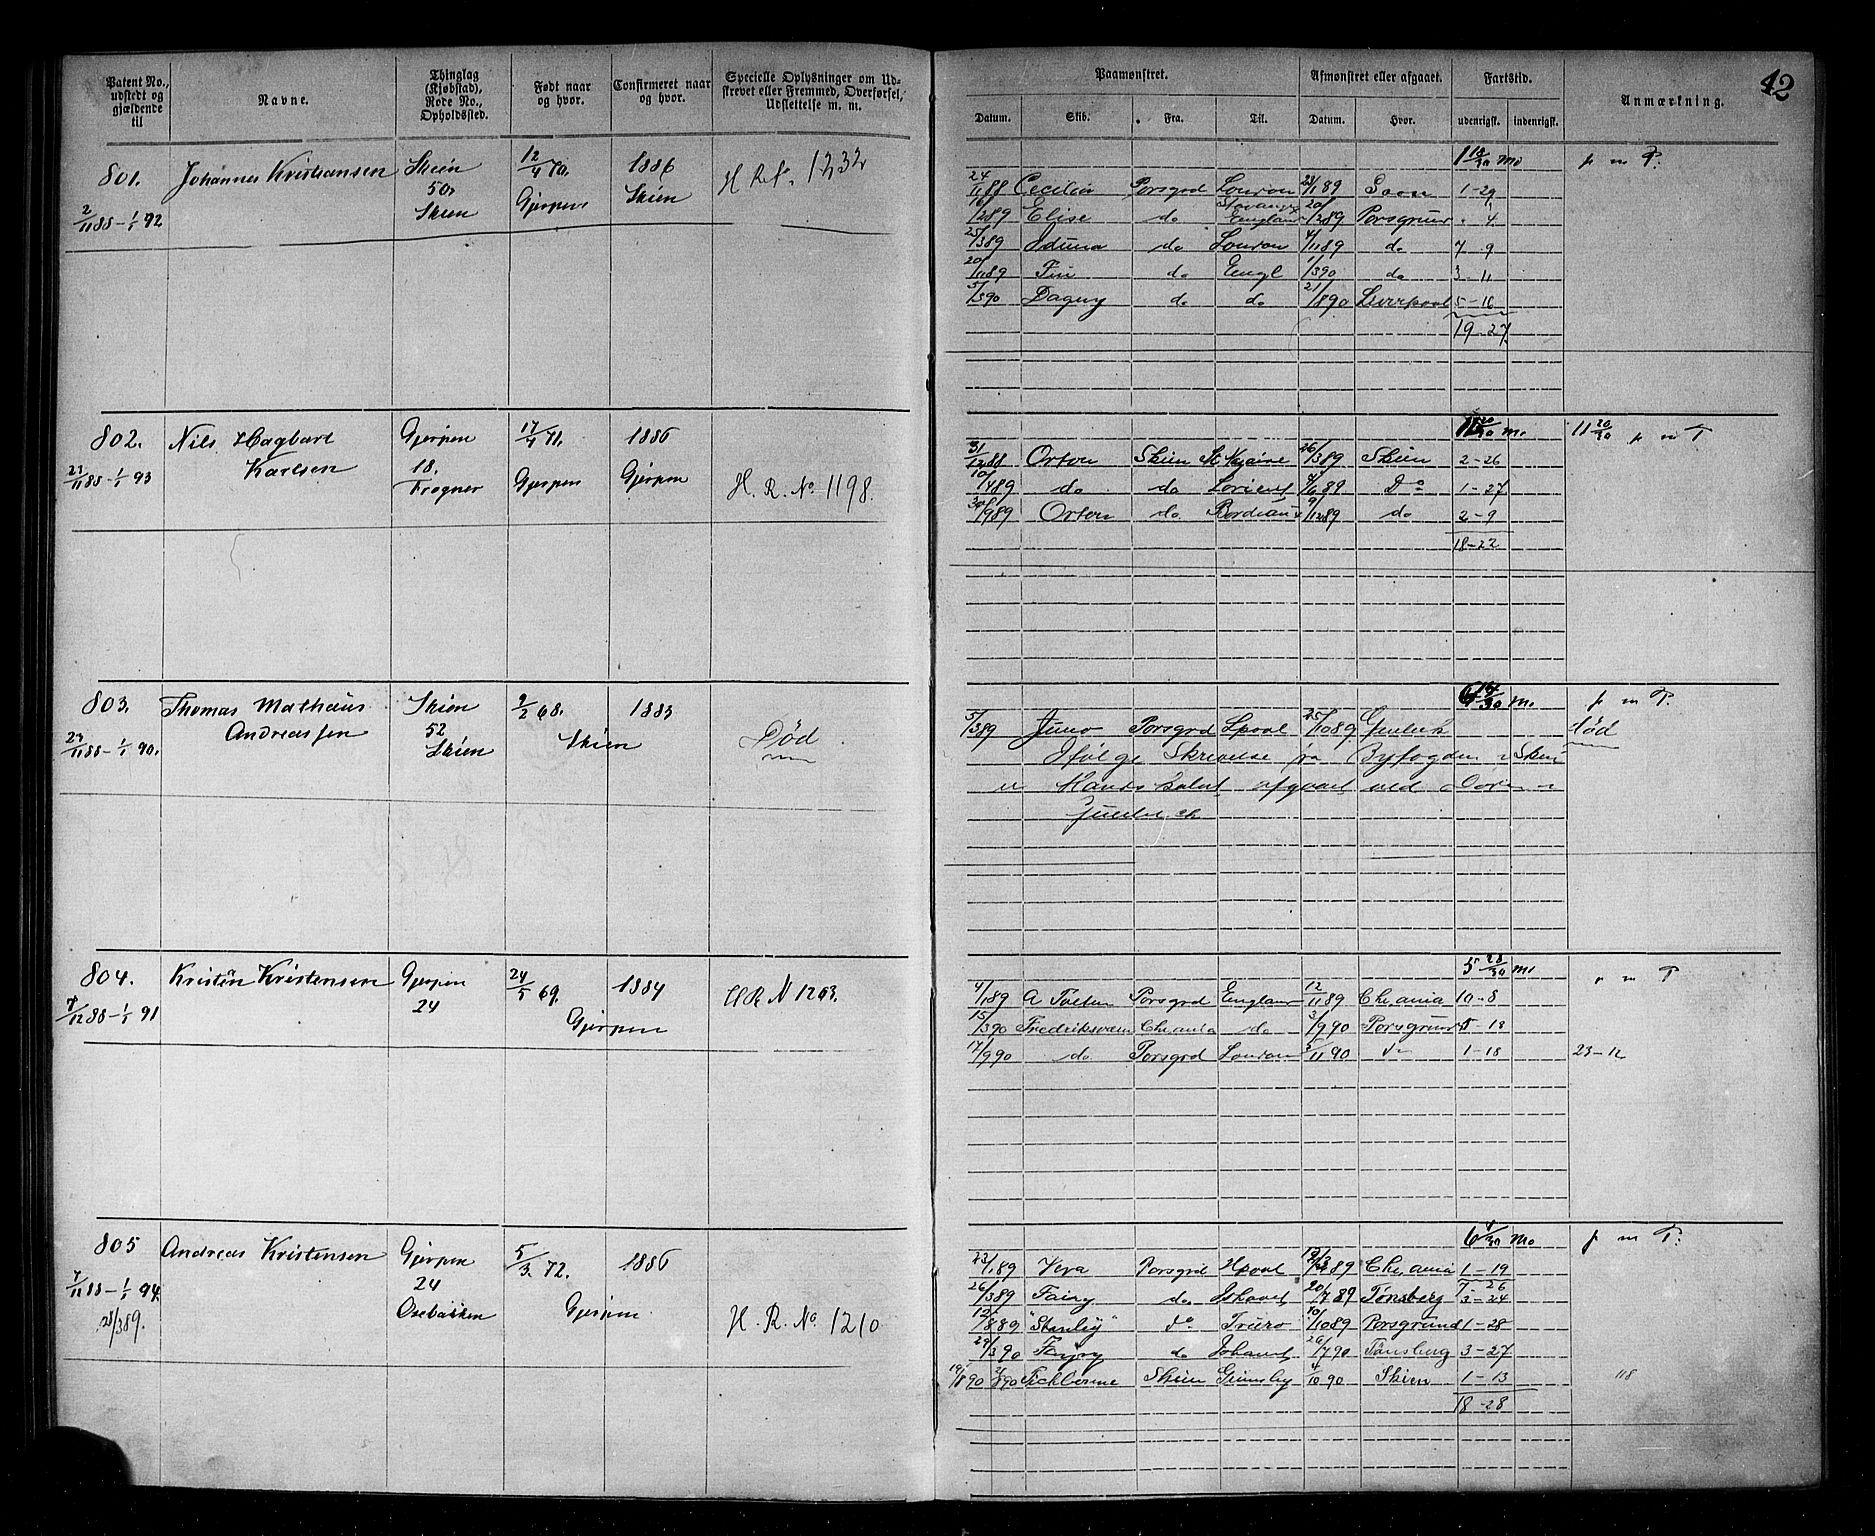 Patent No., udstedt og gjældende til
Navne.
Thinglag (Kjøbstad), Rode No., Opholdssted.
Født naar og hvor.
Confirmeret naar og hvor.
Specielle Oplysninger om Udskrevet eller Fremmed, Overførsel, Udslettelse m. m.
Paamønstret.
Afmønstret eller afgaaet.
Fartstid.
Anmærkning.
42
Datum. Skib. Fra. Til. Datum. Hvor. udenrigsk. indenrigsk.
801. Johannes Kristiansen Skien 12/4 70. 1886
2/11 88 – 1/1 92 50 Skien Gjerpen Skien
1232
24/11 88 Cecilia Porsgrd London 1-29
16/2 89 Elise do Stavanger England 20/2 89 Porsgrund 4
25/3 89 Iduna do London 4/11 89 do 7 9
20/11 89 do Engl 1/3 90 do 3-11
5/3 90 Dagny do do 21/8 90 Liverpool 5-16
19-27
802. Nils Hagbart Karlsen Gjerpen 17/4 71. 1886
23/11 88 – 1/1 93 18. Frogner Gjerpen Gjerpen
H. R. No. 1198.
11 20/30 p m P
31/12 88 Orton Skien St Nazaire 26/3 89 Skien 2-26
10/4 89 do do Lorient 6 89 Do 1-27
30/9 89 Orton do Bordeaux 9/12 89 do 2-9
18-22
803. Thomas Mathæus Andreassen Skien 9/2 68. 1883
23/11 88 – 1/1 90. 52 Skien Skien
Død.
p m P.
5/3 89 Juno Porsgrd Lpool 25/10 89 død
Ifølge Skrivelse fra Byfogden i Skien
804. Kristen Kristensen Gjerpen 24/5 69. 1884
7/12 88 – 1/1 91 24 Gjerpen
H R N 1203.
5 28/30 m. p m P
4/1 89 Porsgrd England 12/11 89 Chr.ania 10-8
15/3 90 Fredriksværn Chr.ania do 3/9 90 Porsgrund 5-18
17/9 90 do Porsgrd London 5/11 90 1-18 23-12
805 Andreas Kristensen Gjerpen 5/3. 72. 1886
7/12 88 – 1/1 94 24 Osebakken Gjerpen
28/3 89.
H. R. No. 1210
6 4/30 Mo p m P.
23/1 89 Vera Porsgrd Chr.ania 1-19
7-26
26/3 89 Fairy do 20/7 89 Tønsberg 3-24
12/8 89 "Stanley" do Truro 10/10 89 Porsgrund 1-28
29/3 90 Fairy do 26/7 90 Tønsberg 3-27
19/8 90 Tichborne Skien Grimsby 4/10 90 Skien 1-13
118
18-28